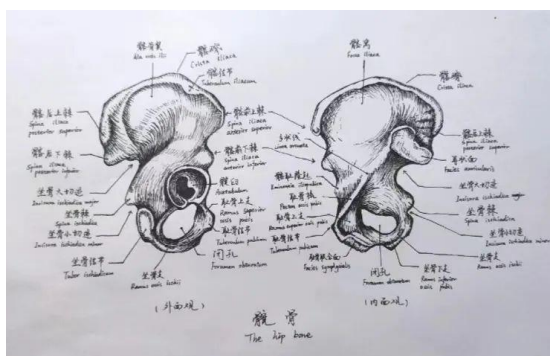 髂骨翼
Ala ossis ilii
髂嵴
Crista iliaca
髂结节
Tuberculum iliacum
髂后上棘
Spina iliaca
posterior superior
髂后下棘
Spina iliaca
posterior inferior
坐骨大切迹
Incisura ischiadica major
坐骨棘
Spina ischiadica
坐骨小切迹
Incisura ischiadica minor
坐骨结节
Tuber ischiadicum
坐骨支
Ramus ossis ischii
髂前上棘
Spina iliaca
anterior superior
髂前下棘
Spina iliaca
anterior inferior
髋臼
Acetabulum
耻骨上支
Ramus superior
ossis pubis
耻骨结节
Tuberculum pubicum
闭孔
Foramen obturatum
(外面观)
髂窝
Fossa iliaca
髂嵴
Crista iliaca
弓状线
Linea arcuata
髂后上棘
Spina iliaca
posterior superior
耳状面
Facies auricularis
坐骨大切迹
Incisura ischiadica major
坐骨棘
Spina ischiadica
坐骨小切迹
Incisura ischiadica minor
坐骨支
Ramus ossis ischii
髂耻隆起
耻骨梳
Pecten ossis pubis
耻骨上支
Ramus superior ossis pubis
耻骨结节
Tuberculum pubicum
耻骨联合面
Facies symphysialis
闭孔
Foramen obturatum
耻骨下支
Ramus inferior
ossis pubis
(内面观)
髋骨
The hip bone